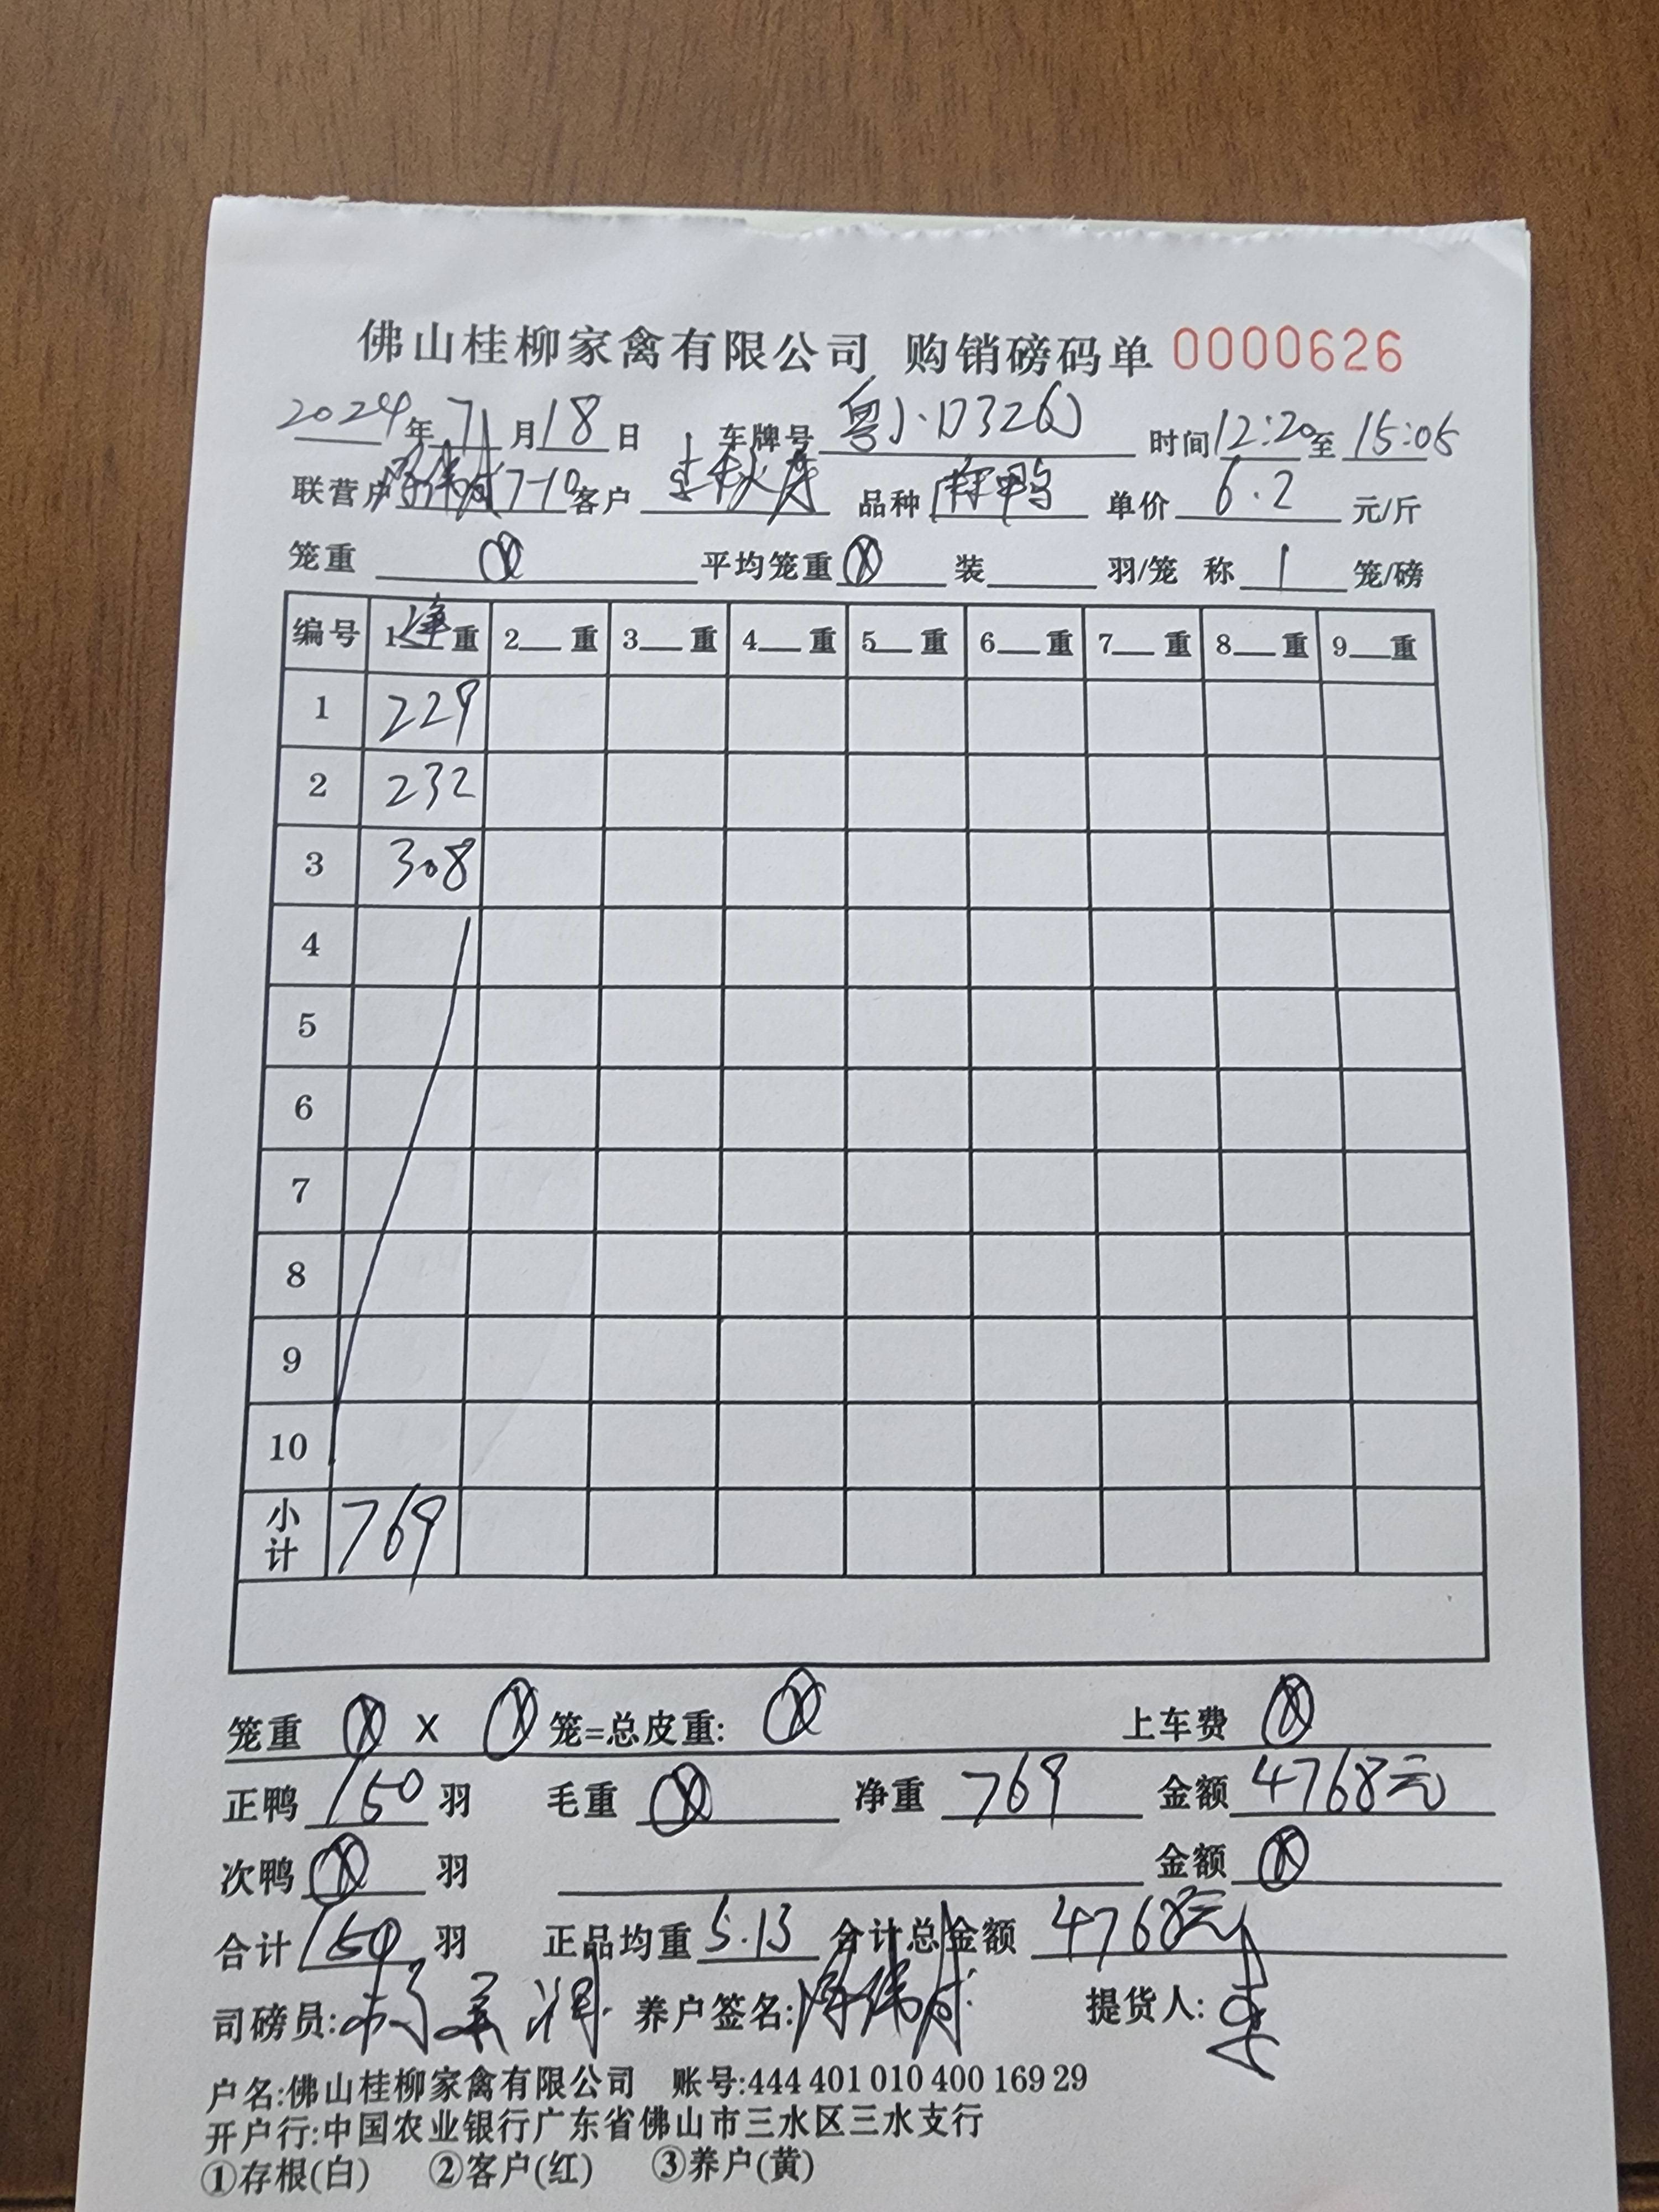 佛山桂柳家禽有限公司 购销磅码单 0000626
2024年7月18日 车牌号 粤J·D326Q 时间12:20至15:05
联营户 7-10 客户 品种 鸭 单价 6.2 元/斤
笼重 ⓧ 平均笼重 ⓧ 装 羽/笼 称 1 笼/磅
编号 1净重 2 重 3 重 4 重 5 重 6 重 7 重 8 重 9 重
1 229
2 232
3 308
4
5
6
7
8
9
10
小计 769
笼重 ⓧ X ⓧ 笼=总皮重: ⓧ 上车费 ⓧ
正鸭 150 羽 毛重 ⓧ 净重 769 金额 4768元
次鸭 ⓧ 羽 金额 ⓧ
合计 150 羽 正品均重 5.13 合计总金额 4768元
司磅员: 养户签名: 提货人:
户名:佛山桂柳家禽有限公司 账号:444 401 010 400 169 29
开户行:中国农业银行广东省佛山市三水区三水支行
①存根(白) ②客户(红) ③养户(黄)